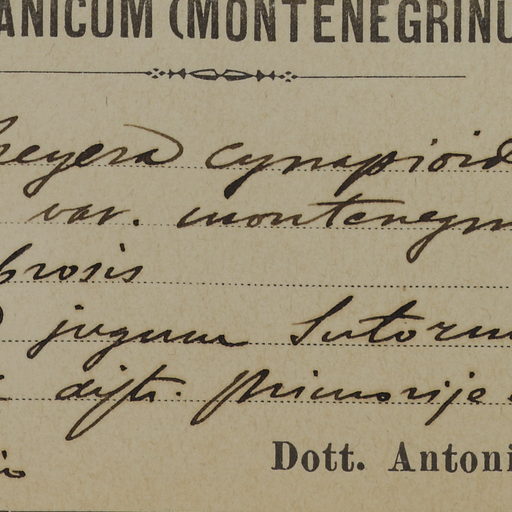 ANICUM (MONTENEGRINU
heyera cynapioid
var. montenegr
brosis
jugum Sutorm
distr. Primorije
Dott. Antoni